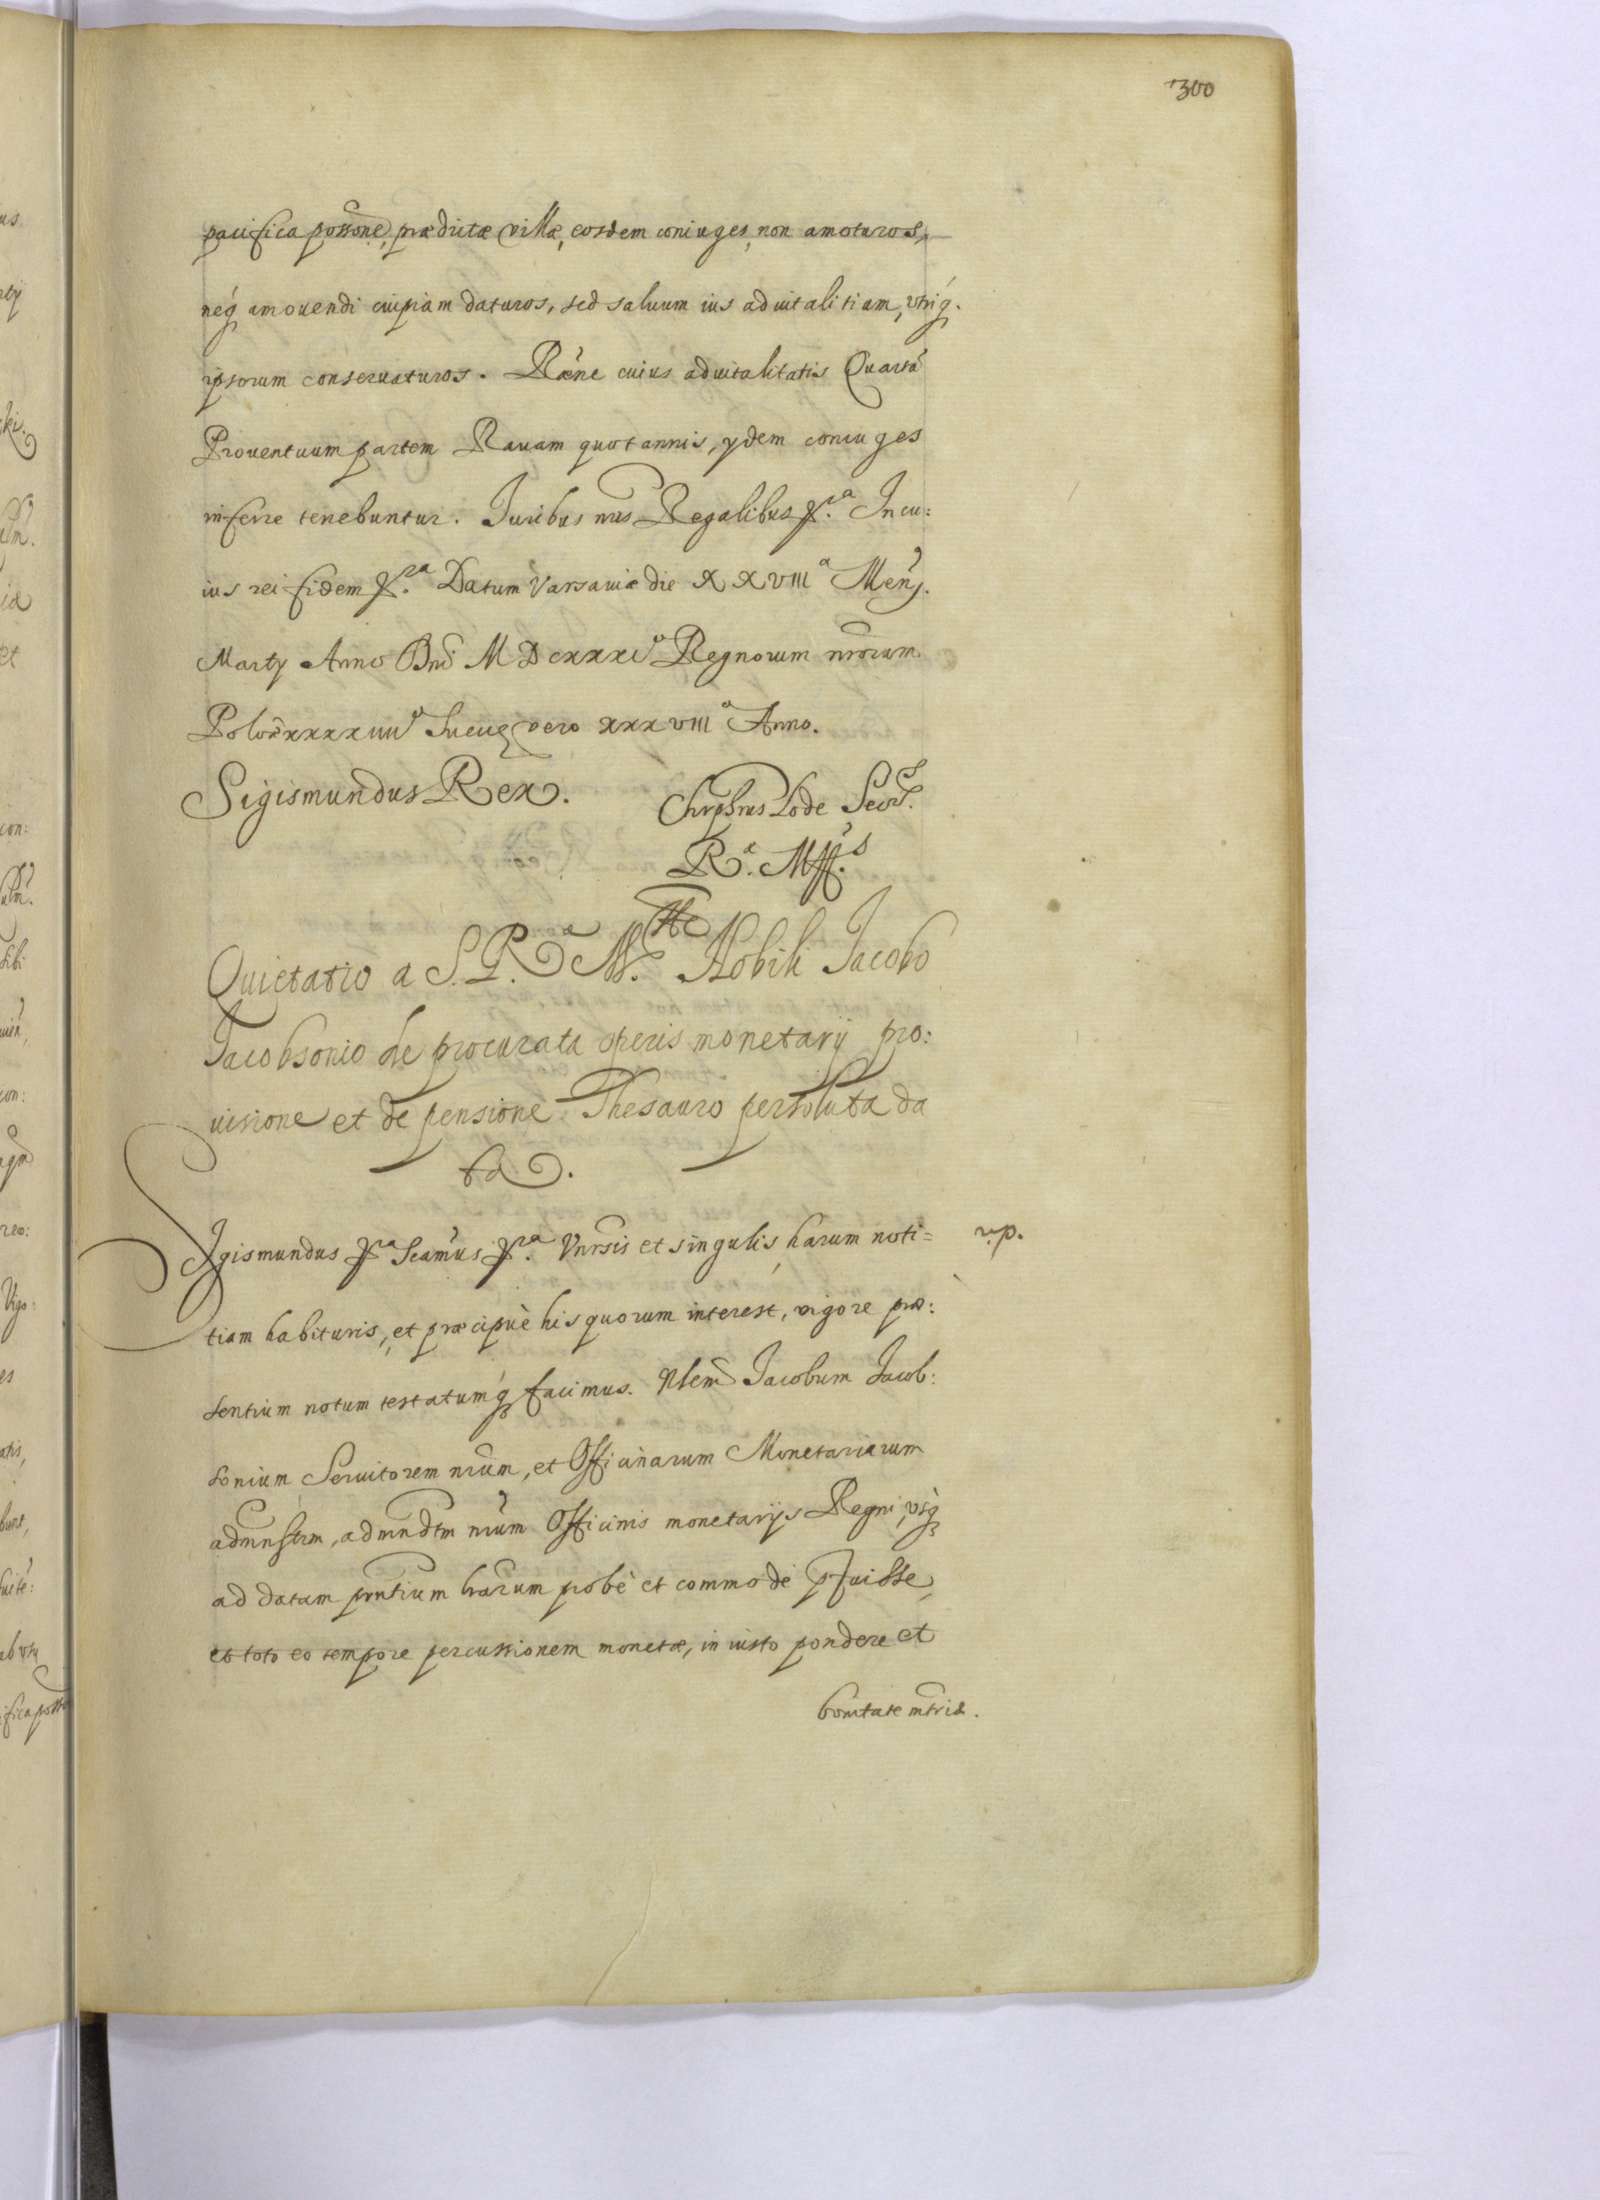 300
pacifica possone, prædictæ villæ, eosdem coniuges, non amoturos,
neq amouendi cuipiam daturos, sed saluum ius aduitalitiam, vtriq.
ipsorum conseruaturos. Raõne cuius aduitalitatis Quartã
Prouentuum partem Rauam quotannis, ydem coniuges
inferre tenebuntur. Iuribus nris Regalibus &ra. In cu:
ius rei fidem &ra. Datum Varsauiæ die XXVIIIa Mens.
Marty Anno Dni MDCXXXIo Regnorum nrorum
Polon xxxxiiiio Sueciq vero xxxviiio Anno.
Sigismundus Rex. Chrphrus Lode Secr.
Ra. Mttis
Quietatio a S. R.a M.tte Nobili Jacobo
Jacobsonio de procurata operis monetarij pro:
uisione et de pensione Thesauro persoluta da
ta.
Sigismundus &ra Seamus &ra. Vnrsis et singulis, harum noti= r.p.
tiam habituris, et præcipuè his quorum interest, vigore præ:
sentium notum testatumq facimus. Nlem Jacobum Jacob:
sonium Seruitorem nrum, et Officinarum Monetariarum
admnstrm, ad mndtm nrum Officinis monetarijs Regni, vsq
ad datam prntium harum probè et commodè pfuisse,
et toto eo tempore percussionem monetæ, in iusto pondere et
bonitate mtriæ.